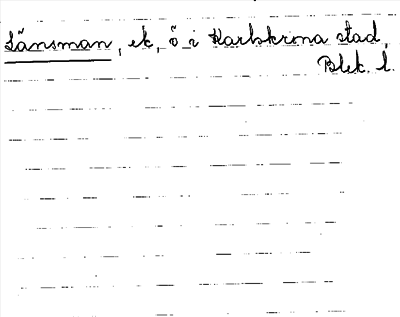 Länsman, ek, ö i Karlskrona stad,
Blek. l.